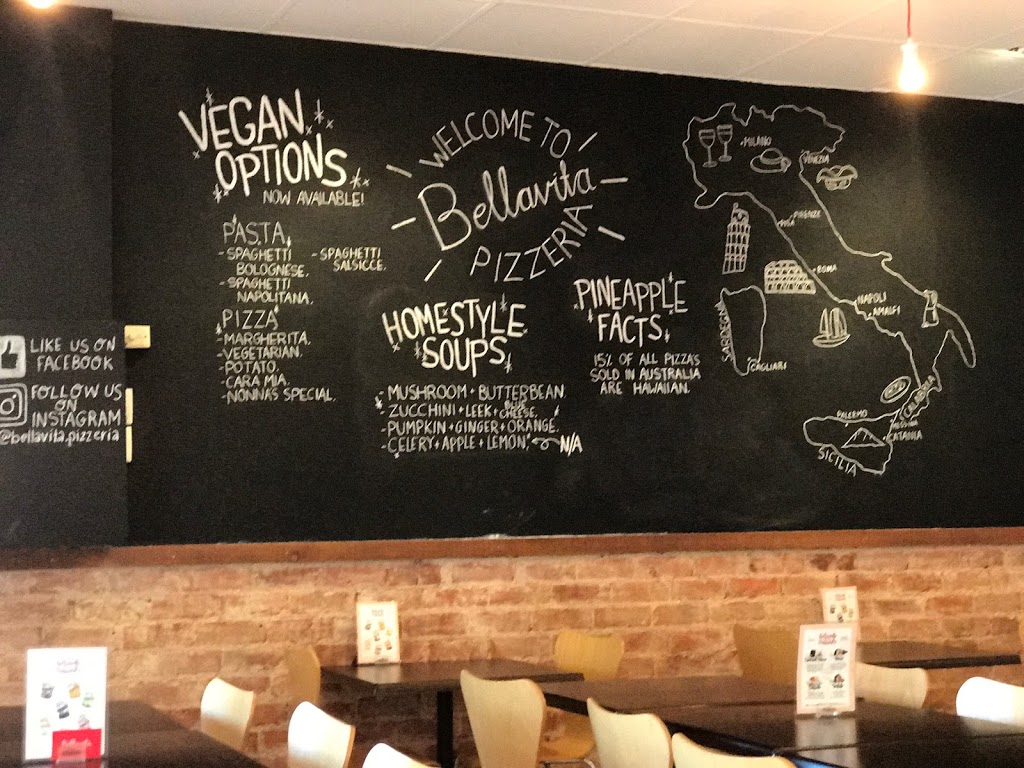 VEGAN
OPTIONS
NOW AVAILABLE!
PASTA
- SPAGHETTI
BOLOGNESE.
- SPAGHETTI
NAPOLITANA.
- SPAGHETTI
SALSICCE.
PIZZA
- MARGHERITA.
- VEGETARIAN.
- POTATO.
- CARA MIA.
- NONNA'S SPECIAL.
WELCOME TO
Bellavita
PIZZERIA
HOMESTYLE
SOUPS
- MUSHROOM + BUTTERBEAN
- ZUCCHINI + LEEK + BLUE CHEESE.
- PUMPKIN + GINGER + ORANGE.
- CELERY + APPLE + LEMON. N/A
PINEAPPLE
FACTS
15% OF ALL PIZZA'S
SOLD IN AUSTRALIA
ARE HAWAIIAN.
MILANO
VENEZIA
PISA
FIRENZE
ROMA
NAPOLI
AMALFI
SARDEGNA
CAGLIARI
CALABRIA
PALERMO
MESSINA
CATANIA
SICILIA
LIKE US ON
FACEBOOK
FOLLOW US
ON
INSTAGRAM
@bellavita.pizzeria